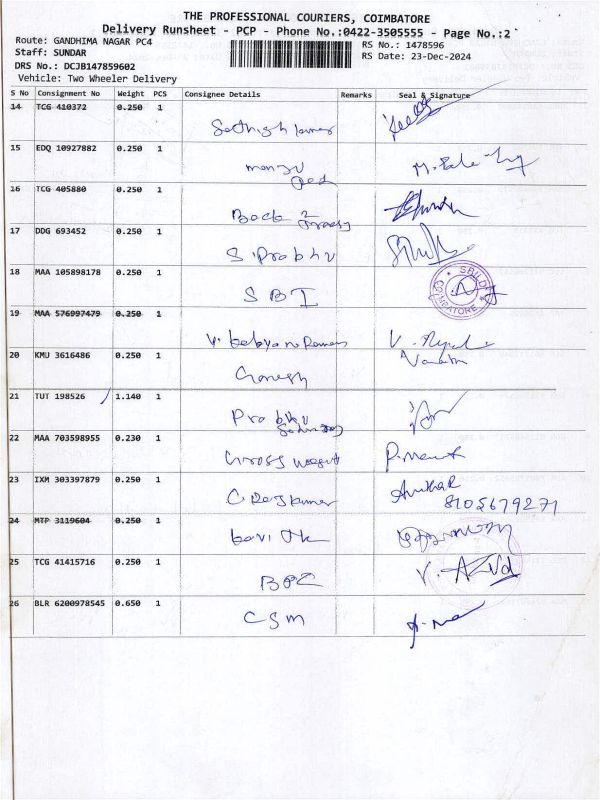 THE PROFESSIONAL COURIERS, COIMBATORE
Delivery Runsheet - PCP - Phone No.:0422-3505555 - Page No.:2
Route: GANDHIMA NAGAR PC4 RS No.: 1478596
Staff: SUNDAR RS Date: 23-Dec-2024
DRS No.: DCJB147859602
Vehicle: Two Wheeler Delivery
S No Consignment No Weight PCS Consignee Details Remarks Seal & Signature
14 TCG 410372 0.250 1
Sathish kumar
15 EDQ 10927882 0.250 1
manju
16 TCG 405880 0.250 1
Back 2
17 DDG 693452 0.250 1
S Prabhu
18 MAA 105898178 0.250 1
SBI
COIMBATORE
19 MAA 576997479 0.250 1
V.
20 KMU 3616486 0.250 1
Ganesh
21 TUT 198526 1.140 1
Prabhu
22 MAA 703598955 0.230 1
Cross
23 IXM 303397879 0.250 1
C. Raj kumar
8105679271
24 MTP 3119604 0.250 1
25 TCG 41415716 0.250 1
V.
26 BLR 6200978545 0.650 1
CSM